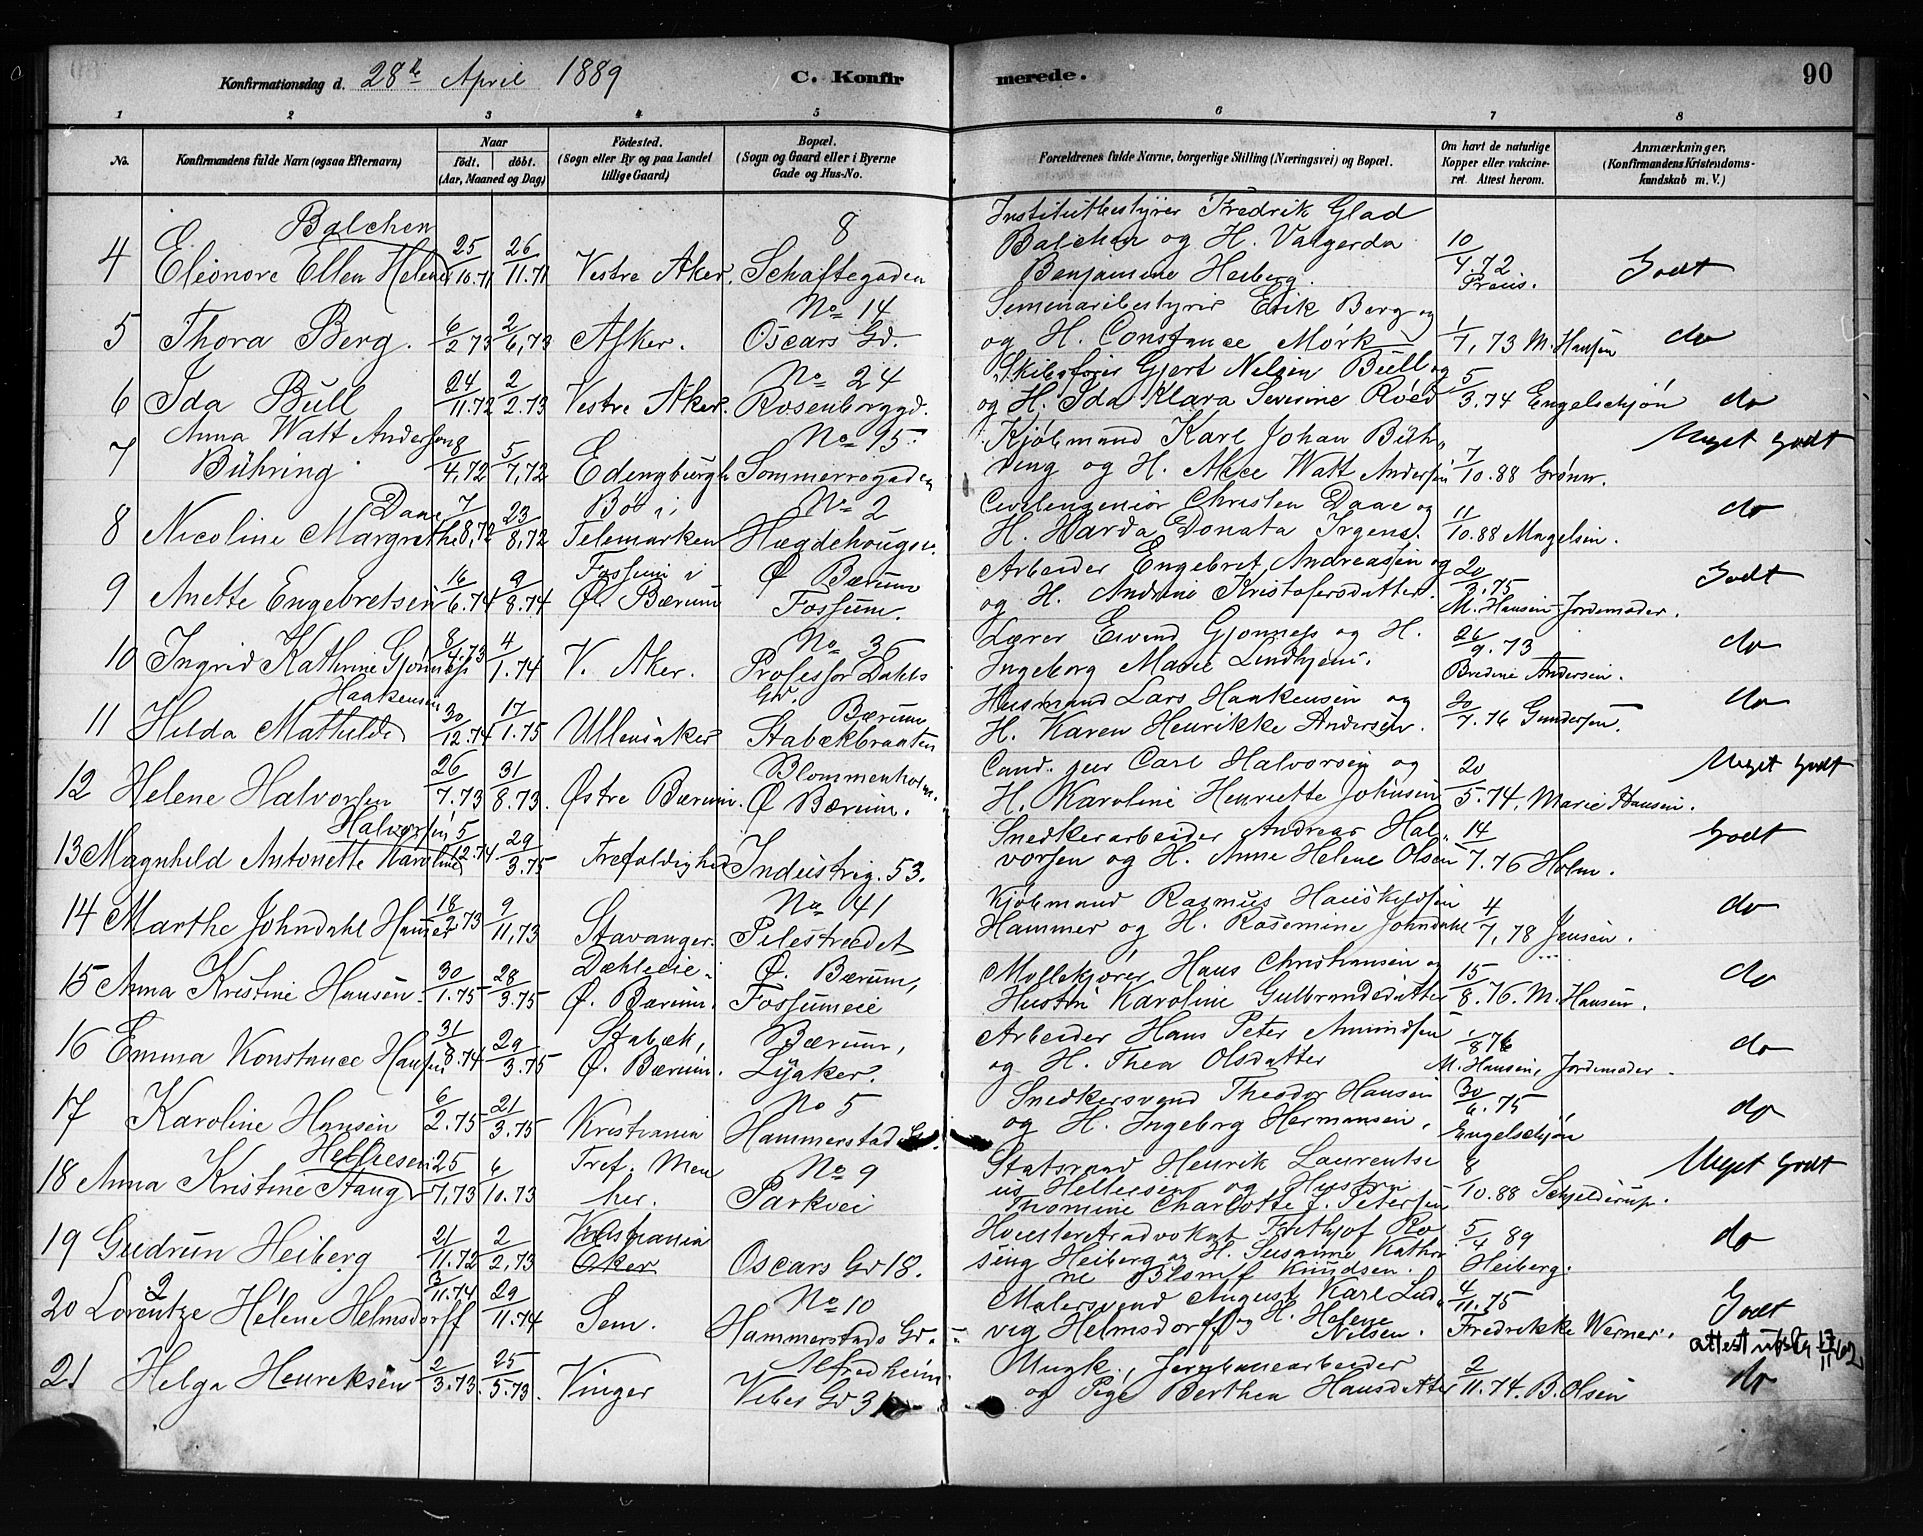 Konfirmationsdag d. 28de April 1889 C. Konfirmerede. 90
1 2 3 4 5 6 7 8
No. Konfirmandens fulde Navn (ogsaa Efternavn) Naar født. døbt. (Aar, Maaned og Dag) Fødested. (Sogn eller By og paa Landet tillige Gaard) Bopæl. (Sogn og Gaard eller i Byerne Gade og Hus-No. Forældrenes fulde Navne, borgerlige Stilling (Næringsvei) og Bopæl. Om havt de naturlige Kopper eller vakcineret. Attest herom. Anmærkninger, (Konfirmandens Kristendomskundskab m. V.)
Balchen 8 Institutbestyrer Fredrik Glad
4 Eleonore Ellen Helene 25/10.71 26/11.71 Vestre Aker. Schaftegaden Balchen og H. Valgerda Benjamine Heiberg. 10/4.72 Preus. Godt
No 14 Seminaribestyrer Erik Berg og
5 Thora Berg. 6/2 73 2/6,73 Asker. Oscars Gd. og H. Constance Mørk 1/7,73 M. Hansen do
No 24 Skibsfører Gjert Nelsen Bull og
6 Ida Bull 24/11.72 2/2.73 Vestre Aker. Rosenborggd. og H. Ida Klara Severine Røed 5/3.74 Engelschjøn do
Anna Watt Andersen No 15 Kjøbmand Karl Johan Büh-
7 Bühring 8/4,72 5/7,72 Edengburgh Sommerrogaden ring og H. Alice Watt Andersen 7/10.88 Grønn. Meget godt
Daae Bø i No 2 Civilengeniør Christen Daae og
8 Nicoline Margrethe 7/8,72 23/8,72 Telemarken Hægdehougsv. H. Harda Donata Irgens. 11/10.88 Magelsen. do
Fossum i Ø Bærum Arbeider Engebret Andreassen og
9 Anette Engebretsen 16/6.74 9/8.74 Ø. Bærum Fossum. og H. Andrine Kristofersdatter. 20/3.75 M. Hansen Jordemoder. Godt
No 36 Lærer Eivend Gjønness og H.
10 Ingrid Kathrine Gjønness 8/4.73 4/1.74 V. Aker. Professor Dahls Gd. Ingeborg Marie Lindhjem. 26/9.73 Bredine Andersen. do
Haakensen Bærum Husmand Lars Haakensen og
11 Hilda Mathilde 30/12.74 17/1.75 Ullensaker Stabækbraaten H. Karen Henrikke Andersen. 20/7.76 Gundersen. do
Blommenholm. Cand. jur Carl Halvorsen og
12 Helene Halvorsen 26/7.73 31/8.73. Østre Bærum. Ø Bærum. H. Karoline Henriette Johnsen 20/5.74, Marie Hansen. Meget godt
Halvorsen Snedkerarbeider Andreas Hal-
13 Magnhild Antonette Karoline 5/12.74 29/3.75 Trefoldighed Industrig. 53. vorsen og H. Anne Helene Olsen 14/7.76 Holm. Godt
No 41 Kjøbmand Rasmus Hauskeldsen
14 Marthe Johndahl Hammer 18/2 73 9/11,73 Stavanger. Pilestrædet Hammer og H. Rasemine Johndahl 4/7,78 Jensen. do
Dæhleeie Ø. Bærum, Møllekjører Hans Christiansen og
15 Anna Kristine Hansen. 30/1.75 28/3.75 Ø. Bærum. Fossumeie Hustru Karoline Gulbrandsdatter 15/8.76. M. Hansen. do
Stabæk, Bærum, Arbeider Hans Peter Amundsen
16 Emma Konstance Hansen 31/8.74 29/3.75 Ø. Bærum. Lysaker. og H. Thea Olsdatter 1/8 76 M. Hansen, Jordemoder. do
No 5 Snedkersvend Theodor Hansen
17 Karoline Hansen 6/2.75 21/3.75 Kristiania Hammerstad G. og H. Ingeborg Hermansen. 30/6.75 Engelschjøn do
Helliesen Tref. Men No 9 Statsraad Henrik Laurentse
18 Anna Kristine Stang 25/7,73 6/10.73 her. Parkvei us Helliesen og Hustru Thomine Charlotte f. Petersen 8/10.88 Schjelderup. Meget Godt
Kristiania Høiesteretsadvokat Frithjof Ro
19 Gudrun Heiberg 21/11.72 2/2,73 Aker Oscars Gd 18. sing Heiberg og H. Susanne Kathri ne Blom f Knudsen. 5/4 89 Heiberg. do
No 10 Malersvend August Karl Lud
20 Lorentze Helene Helmsdorff 3/11.74 29/11.74 Sem. Hammerstads Gd. vig Helmsdorff og H. Helene Nelsen. 4/11.75 Fredrikke Werner. Godt
attest
Alfredheim Ungk., Jernbanearbeider
21 Helga Henriksen 2/3.73. 25/5.73. Vinger Vibes Gd 31 og Pige Berthea Hansdatter 2/11.74. B. Olsen do